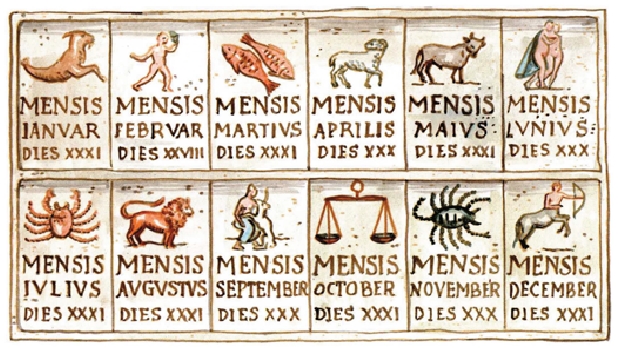 MENSIS
IANVAR
DIES XXXI
MENSIS
FEBRVAR
DIES XXVIII
MENSIS
MARTIVS
DIES XXXI
MENSIS
APRILIS
DIES XXX
MENSIS
MAIVS
DIES XXXI
MENSIS
LVNIVS
DIES XXX
MENSIS
IVLIVS
DIES XXXI
MENSIS
AVGVSTVS
DIES XXXI
MENSIS
SEPTEMBER
DIES XXX
MENSIS
OCTOBER
DIES XXXI
MENSIS
NOVEMBER
DIES XXX
MENSIS
DECEMBER
DIES XXXI